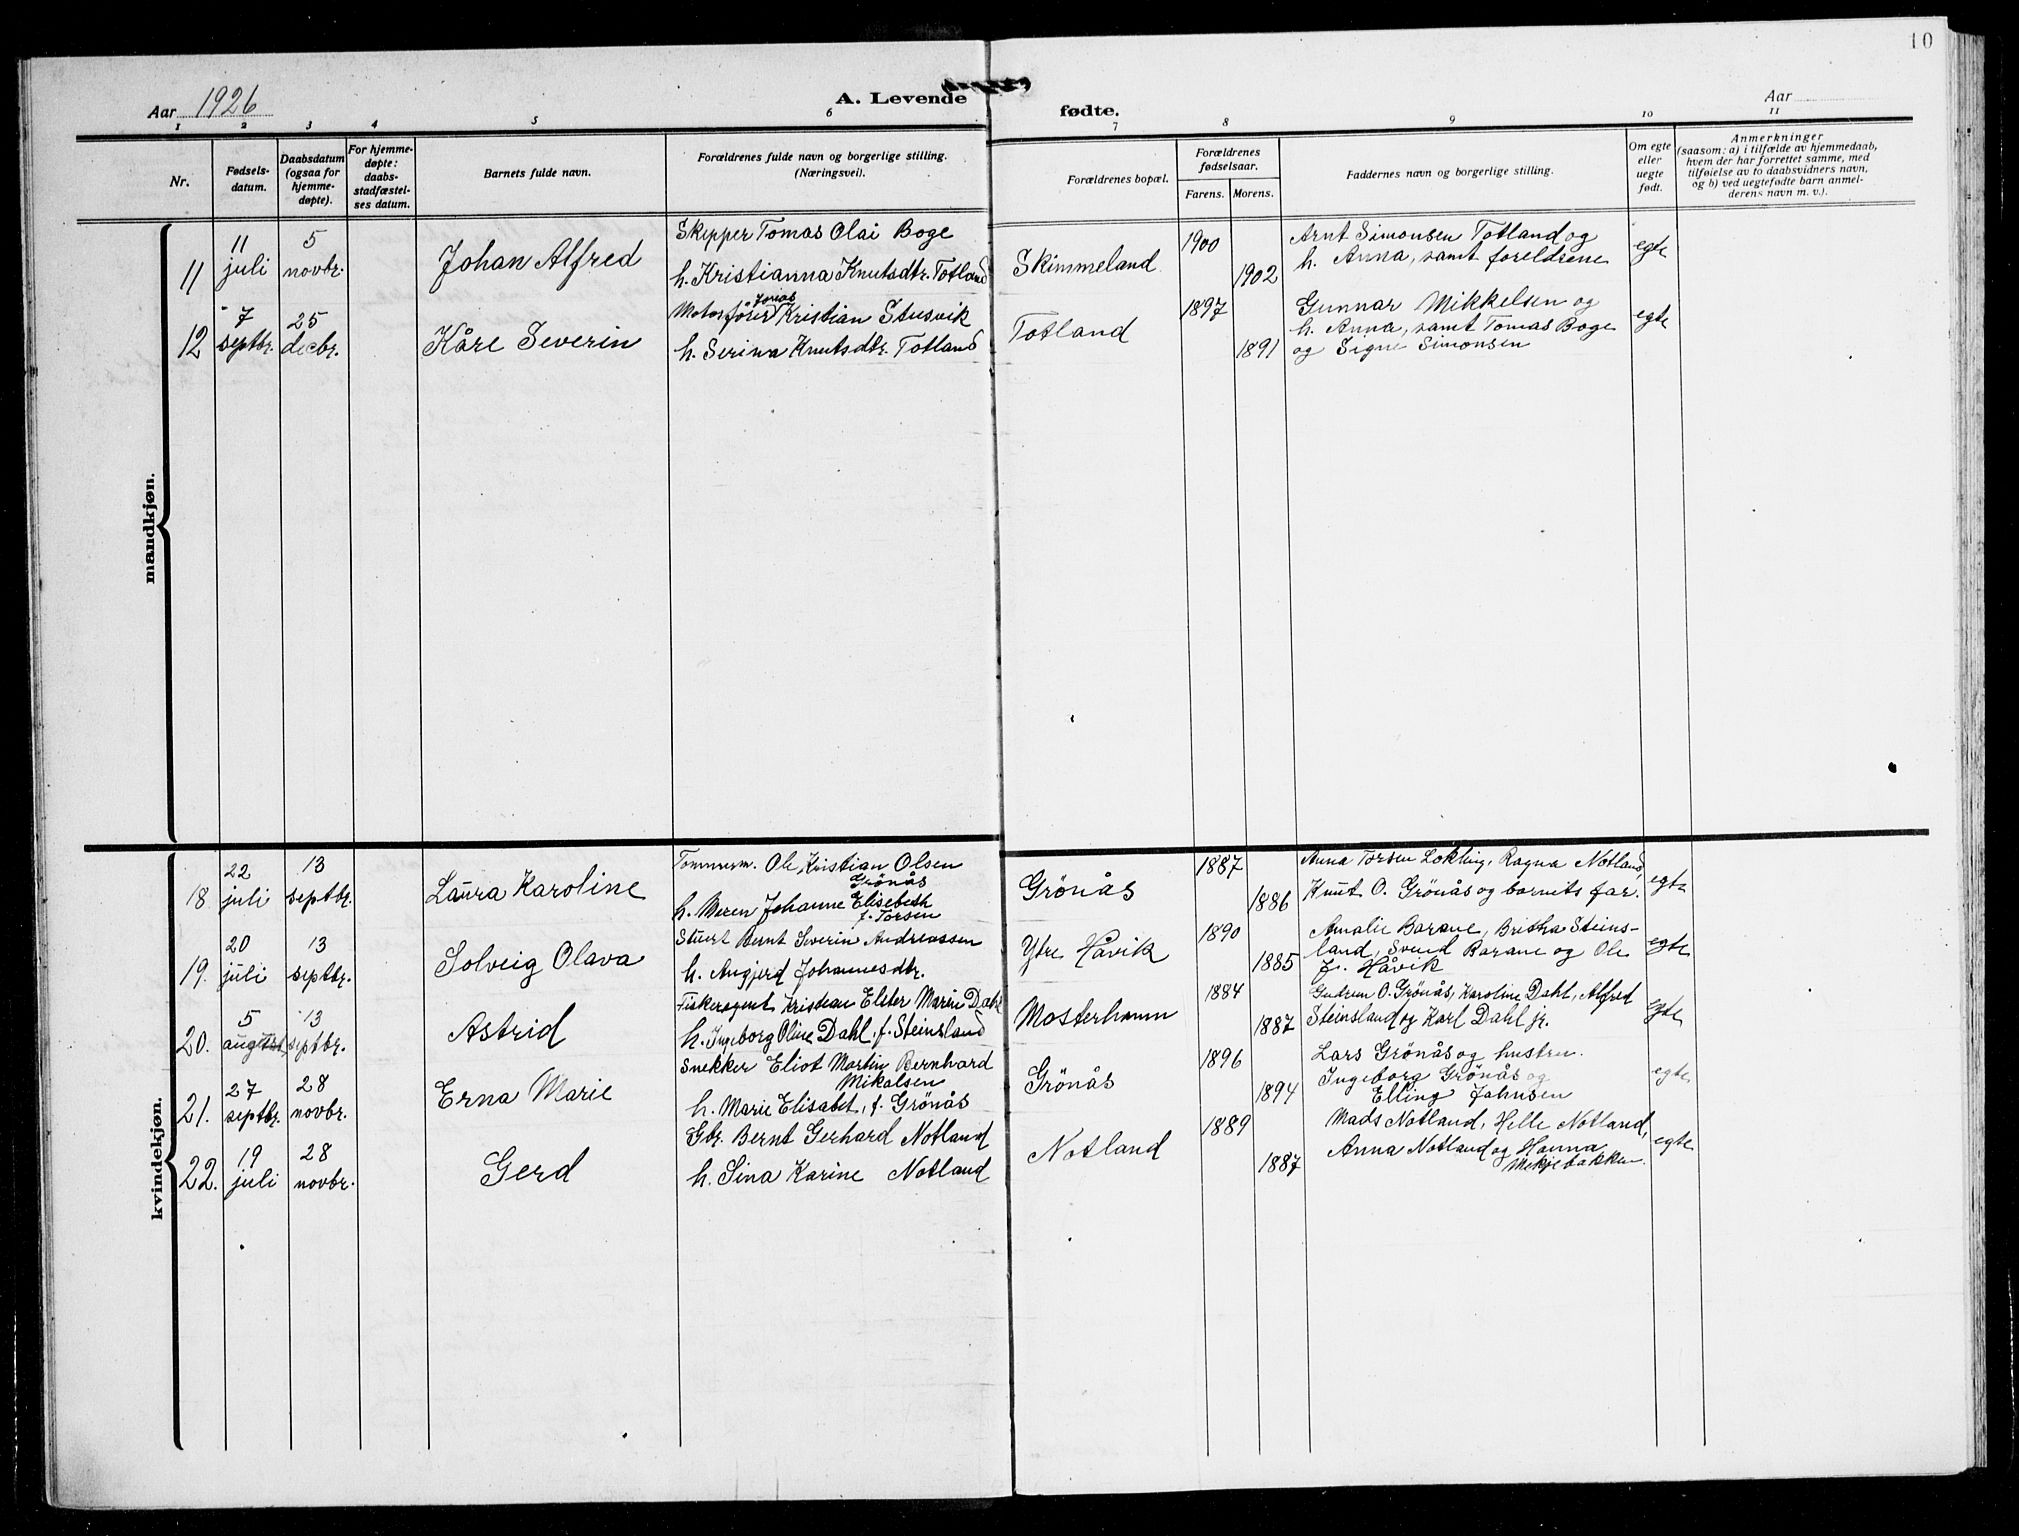 10
Aar 1926
A. Levende fødte.
Aar
1 2 3 4 5 6 7 8 9 10 11
Nr.
Fødsels-
datum.
Daabsdatum
(ogsaa for
hjemme-
døpte).
For hjemme-
døpte:
daabs-
stadfæstel-
ses datum.
Barnets fulde navn.
Forældrenes fulde navn og borgerlige stilling.
(Næringsvei).
Forældrenes bopæl.
Forældrenes
fødselsaar.
Farens. Morens.
Faddernes navn og borgerlige stilling.
Om egte
eller
uegte
født.
Anmerkninger
(saasom: a) i tilfælde av hjemmedaab,
hvem der har forrettet samme, med
tilføielse av to daabsvidners navn,
og b) ved uegtefødte barn anmel-
derens navn m. v.).
mandkjøn.
11
11
juli
5
novbr.
Johan Alfred
Skipper Tomas Olai Boge
h. Kristianna Knutsdtr. Totland
Skimmeland
1900
1902
Arnt Simonsen Totland og
h. Anna, samt foreldrene
egte
12
7
septbr.
25
decbr.
Kåre Severin
Jonas
Motorfører Kristian Stusvik
h. Serina Knutsdtr. Totland
Totland
1897
1891
Gunnar Mikkelsen og
h. Anna, samt Tomas Boge
og Signe Simonsen
egte
kvindekjøn.
18
22
juli
13
septbr.
Laura Karoline
Tommerm. Ole Kristian Olsen
Grönås
h. Meren Johanne Elisebeth
f. Torsen
Grönås
1887
1886
Anna Torsen Lokling, Ragna Notland,
Knut O. Grönås og barnets far.
egte
19.
20
juli
13
septbr.
Solveig Olava
Stuert Bernt Severin Andreassen
h. Angjerd Johannesdtr.
Ytre Håvik
1890
1885
Amalie Barane, Britha Steins-
land, Svend Barane og Ole
J. Håvik
egte
20.
5
august
13
septbr.
Astrid
Fiskeragent Kristian Elster Marin Dahl
h. Ingeborg Oline Dahl, f. Steinsland
Mosterhamn
1884
1887
Gudrun O. Grönås, Karoline Dahl, Alfred
Steinsland og Karl Dahl jr.
egte
21.
27
septbr.
28
novbr.
Erna Marie
Snekker Eliot Martin Bernhard
Mikalsen
h. Marie Elisabet, f. Grönås
Grönås
1896
1894
Lars Grönås og hustru.
Ingeborg Grönås og
Elling Johnsen
egte
22.
19
juli
28
novbr.
Gerd
Gbr. Bernt Gerhard Notland
h. Sina Karine Notland
Notland
1889
1887
Mads Notland, Helle Notland,
Anna Notland og Hanna
egte